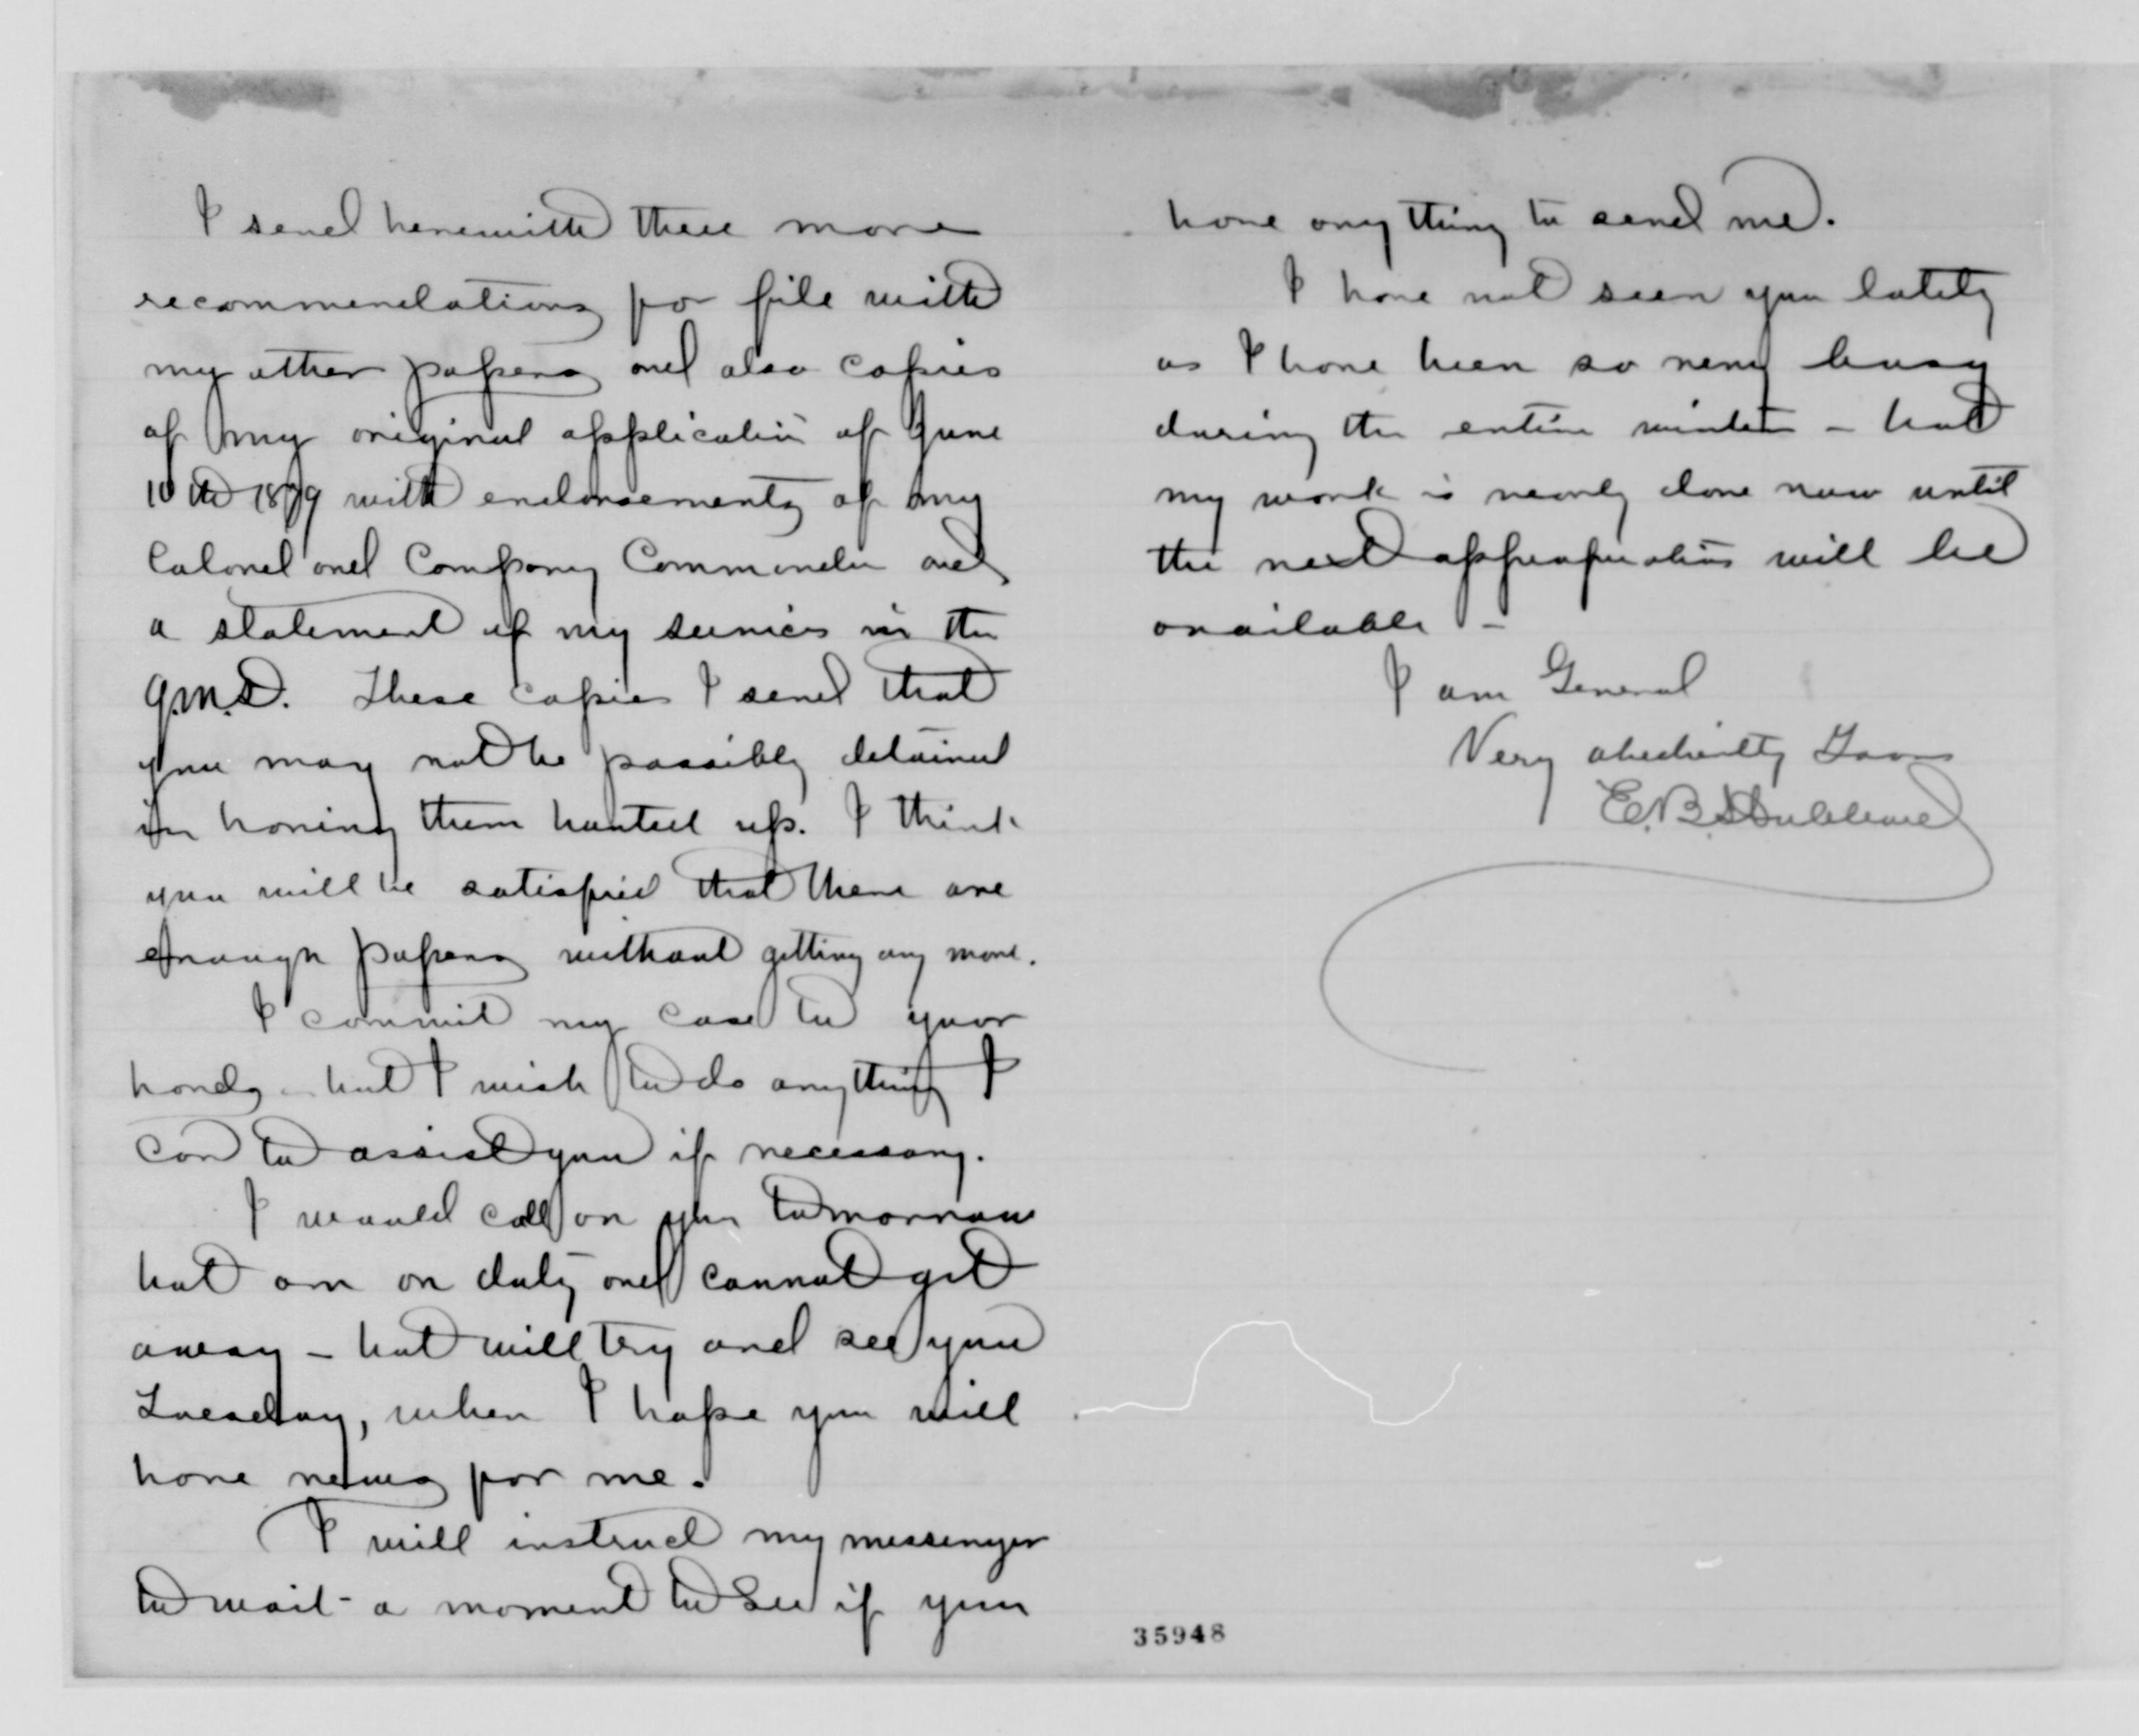 I send herewith three more
recommendations for file with
my other papers and also copies
of my original application of June
10th 1879 with endorsements of my
Colonel and Company Commander and
a statement of my services in the
Q.M.D. These copies I send that
you may not be possibly detained
in having them hunted up. I think
you will be satisfied that there are
enough papers without getting any more.
I commit my case to your
hands - but I wish to do anything I
can to assist you if necessary.
I would call on you tomorrow
but am on duty and cannot get
away - but will try and see you
Tuesday, when I hope you will
have news for me.
I will instruct my messenger
to wait a moment to see if you
have anything to send me.
I have not seen you lately
as I have been so very busy
during the entire winter - but
my work is nearly done now until
the next appropriation will be
available -
I am General
Very obediently Yours
E.B.
35948